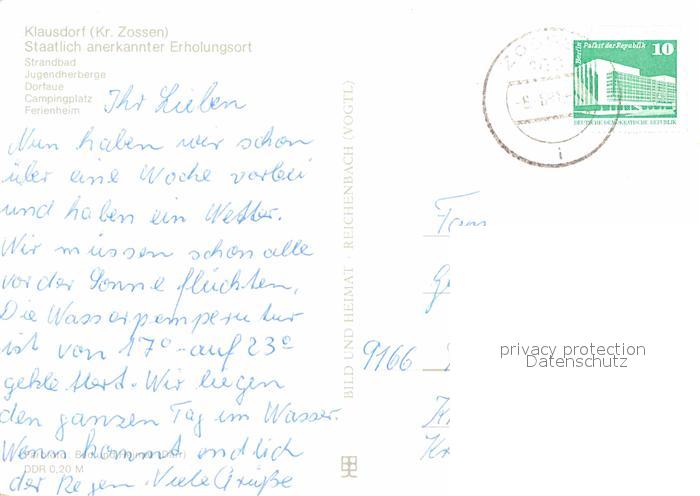 Klausdorf (Kr. Zossen)
Staatlich anerkannter Erholungsort
Strandbad
Jugendherberge
Dorfaue
Campingplatz
Ferienheim
Ihr Lieben
Nun haben wir schon
über eine Woche vorbei
und haben ein Wetter.
Wir müssen schon alle
vor der Sonne flüchten.
Die Wassertemperatur
ist von 17° auf 23°
geklettert. Wir liegen
den ganzen Tag im Wasser.
Wann kommt endlich
der Regen. Viele Grüße
DDR 0,20 M
BILD UND HEIMAT · REICHENBACH (VOGTL)
Berlin Palast der Republik
10
DEUTSCHE DEMOKRATISCHE REPUBLIK
Fam
9166
privacy protection
Datenschutz